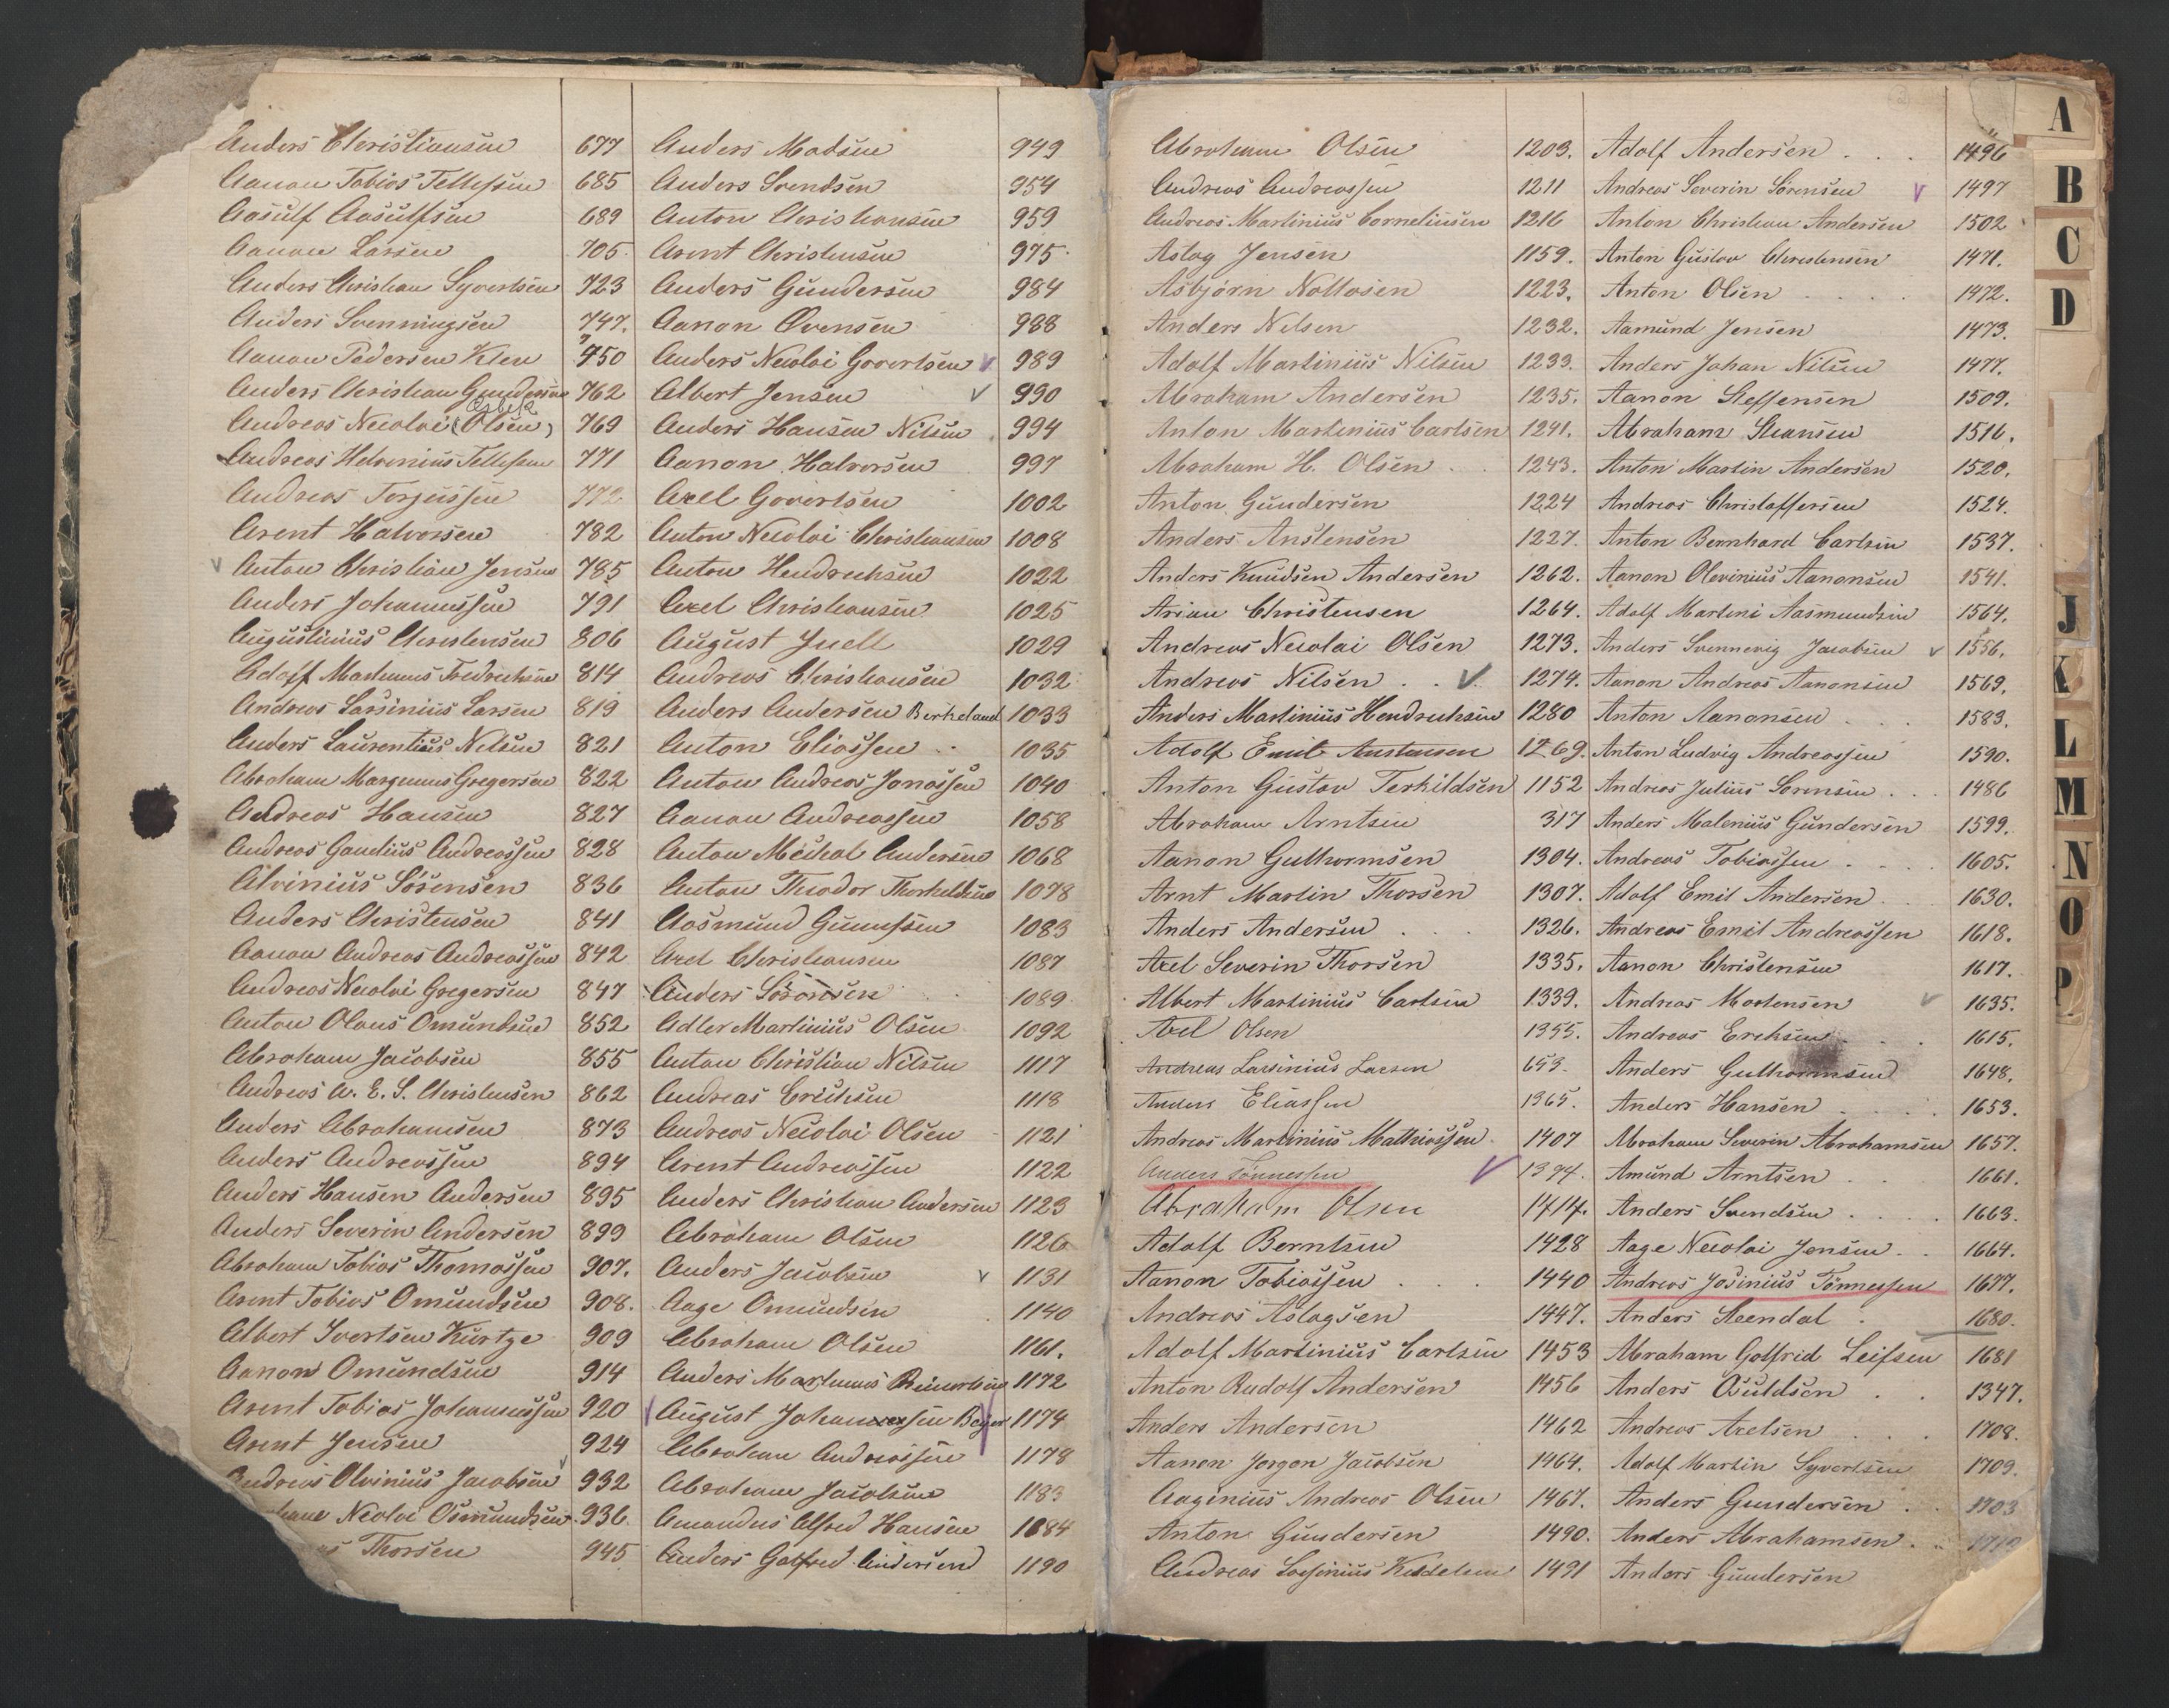 Anders Christiansen 677
Aanon Tobias Tellefsen 685
Aasulf Aasulfsen 689
Aanon Larsen 705.
Anders Christian Syvertsen 723
Anders Svenningsen 747.
Aanon Pedersen 750
Anders Christian Gundersen 762
Andreas Nicolai (Olsen) 769
Andreas Helvinius Tellefsen 771
Andreas Torjussen 772
Arent Halvorsen 782
Anton Christian Jensen 785
Anders Johannessen 791
Augustinius Christensen 806
Adolf Martinius Fredrichsen 814
Andreas Larsinius Larsen 819
Anders Laurentius Nilsen 821
Abraham Gregersen 822
Andreas Hansen 827
Andreas Gaudius Andreassen 828
Alvinius Sörensen 836
Anders Christensen 841
Aanon Andreas Andreassen 842
Andreas Nicolai Gregersen 847
Anton Olaus Omundsen 852
Abraham Jacobsen 855
Andreas A. E. S. Christensen 862
Anders Abrahamsen 873
Anders Andreassen 894
Anders Hansen Andersen 895
Anders Severin Andersen 899
Abraham Tobias Thomassen 907.
Arent Tobias Omundsen 908.
Albert Ivertsen Kurtze 909
Aanon Omundsen 914
Arent Tobias Johannessen 920
Arent Jensen 924
Andreas Olvinius Jacobsen 932
Nicolai Osmundsen 936
Thorsen 945
Anders Madsen 949
Anders Svendsen 954
Anton Christiansen 959
Arent Christensen 975
Anders Gundersen 984
Aanon Evensen 988
Anders Nicolai Govertsen 989
Albert Jensen 990
Anders Hansen Nilsen 994
Aanon Halvorsen 997
Axel Govertsen 1002
Anton Nicolai Christiansen 1008
Anton Hendrichsen 1022
Axel Christiansen 1025
August Juell 1029
Andreas Christiansen 1032
Anders Andersen Berheland 1033
Anton Eliassen 1035
Anton Andreas Jonassen 1040
Aanon Andreassen 1058
Anton Michal Andersen 1068
Anton Theodor Thorkeldsen 1078
Aasmund Gunnufsen 1083
Axel Christiansen 1087
Anders Sörensen 1089
Adler Martinius Olsen 1092
Anton Christian Nilsen 1117
Andreas Erichsen 1118
Andreas Nicolai Olsen 1121
Arent Andreassen 1122
Anders Christian Andersen 1123
Abraham Olsen 1126
Anders Jacobsen 1131
Aage Omundsen 1140
Abraham Olsen 1161.
Anders Martinius Reinertsen 1172
August Johannessen Beyer 1174
Abraham Andreassen 1178
Abraham Jacobsen 1183
Amandus Alfred Hansen 1184
Anders Gotfred Andersen 1190
Abraham Olsen 1203.
Andreas Andreassen 1211
Andreas Martinius Corneliusen 1216
Aslag Jensen 1159.
Asbjørn Nottosen 1223.
Anders Nilsen 1232.
Adolf Martinius Nilsen 1233.
Abraham Andersen 1235.
Anton Martinius Carlsen 1241.
Abraham H. Olsen 1243.
Anton Gundersen 1224
Anders Anstensen 1227.
Anders Knudsen Andersen 1262.
Arian Christensen 1264.
Andreas Nicolai Olsen 1273.
Andreas Nilsen 1274.
Anders Martinius Hendrichsen 1280
Adolf Emil Anstensen 1269.
Anton Gustav Terkildsen 1152
Abraham Arntsen 317
Aanon Guthormsen 1304.
Arnt Martin Thorsen 1307.
Anders Andersen 1326.
Axel Severin Thorsen 1335.
Albert Martinius Carlsen 1339.
Axel Olsen 1355.
Andreas Larsinius Larsen 653.
Anders Eliassen 1365.
Andreas Martinius Mathiassen 1407
Anders Tönnessen 1394.
Abraham Olsen 1414.
Adolf Berntsen 1428
Aanon Tobiassen 1440
Andreas Aslagsen 1447.
Adolf Martinius Carlsen 1453
Anton Rudolf Andersen 1456
Anders Andersen 1462
Aanon Jørgen Jacobsen 1464.
Aaginius Andreas Olsen 1467.
Anton Gundersen 1490.
Andreas 1491
Adolf Andersen 1496
Andreas Severin Sörensen 1497
Anton Christian Andersen 1502
Anton Gustav Christensen 1471.
Anton Olsen 1472.
Aamund Jensen 1473.
Anders Johan Nilsen 1477.
Aanon Steffensen 1509.
Abraham 1516.
Anton Martin Andersen 1520.
Andreas Christoffersen 1524.
Anton Bernhard Carlsen 1537.
Aanon Olevinius Aanonsen 1541.
Adolf Martini Aasmundsen 1564.
Anders Svennevig Jacobsen 1556.
Aanon Andreas Aanonsen 1569.
Anton Aanonsen 1583.
Anton Ludvig Andreassen 1590.
Andreas Julius Sörensen 1486
Anders Malenius Gundersen 1599.
Andreas Tobiassen 1605.
Adolf Emil Andersen 1630.
Andreas Emil Andreassen 1618.
Aanon Christensen 1617.
Andreas Mortensen 1635.
Andreas Erichsen 1615.
Anders Guthormsen 1648.
Anders Hansen 1653.
Abraham Severin Abrahamsen 1657.
Amund Arntsen 1661.
Anders Svendsen 1663.
Aage Nicolai Jensen 1664.
Andreas Josinius Tönnessen 1677.
Anders Steendal 1680.
Abraham Gotfrid Leifsen 1681
Anders Osuldsen 1347.
Andreas Axelsen 1708.
Adolf Martin Syvertsen 1709.
Anders Gundersen 1703
Anders Abrahamsen
Anders Gundersen
A
B
C
D
J
K
L
M
N
O
P